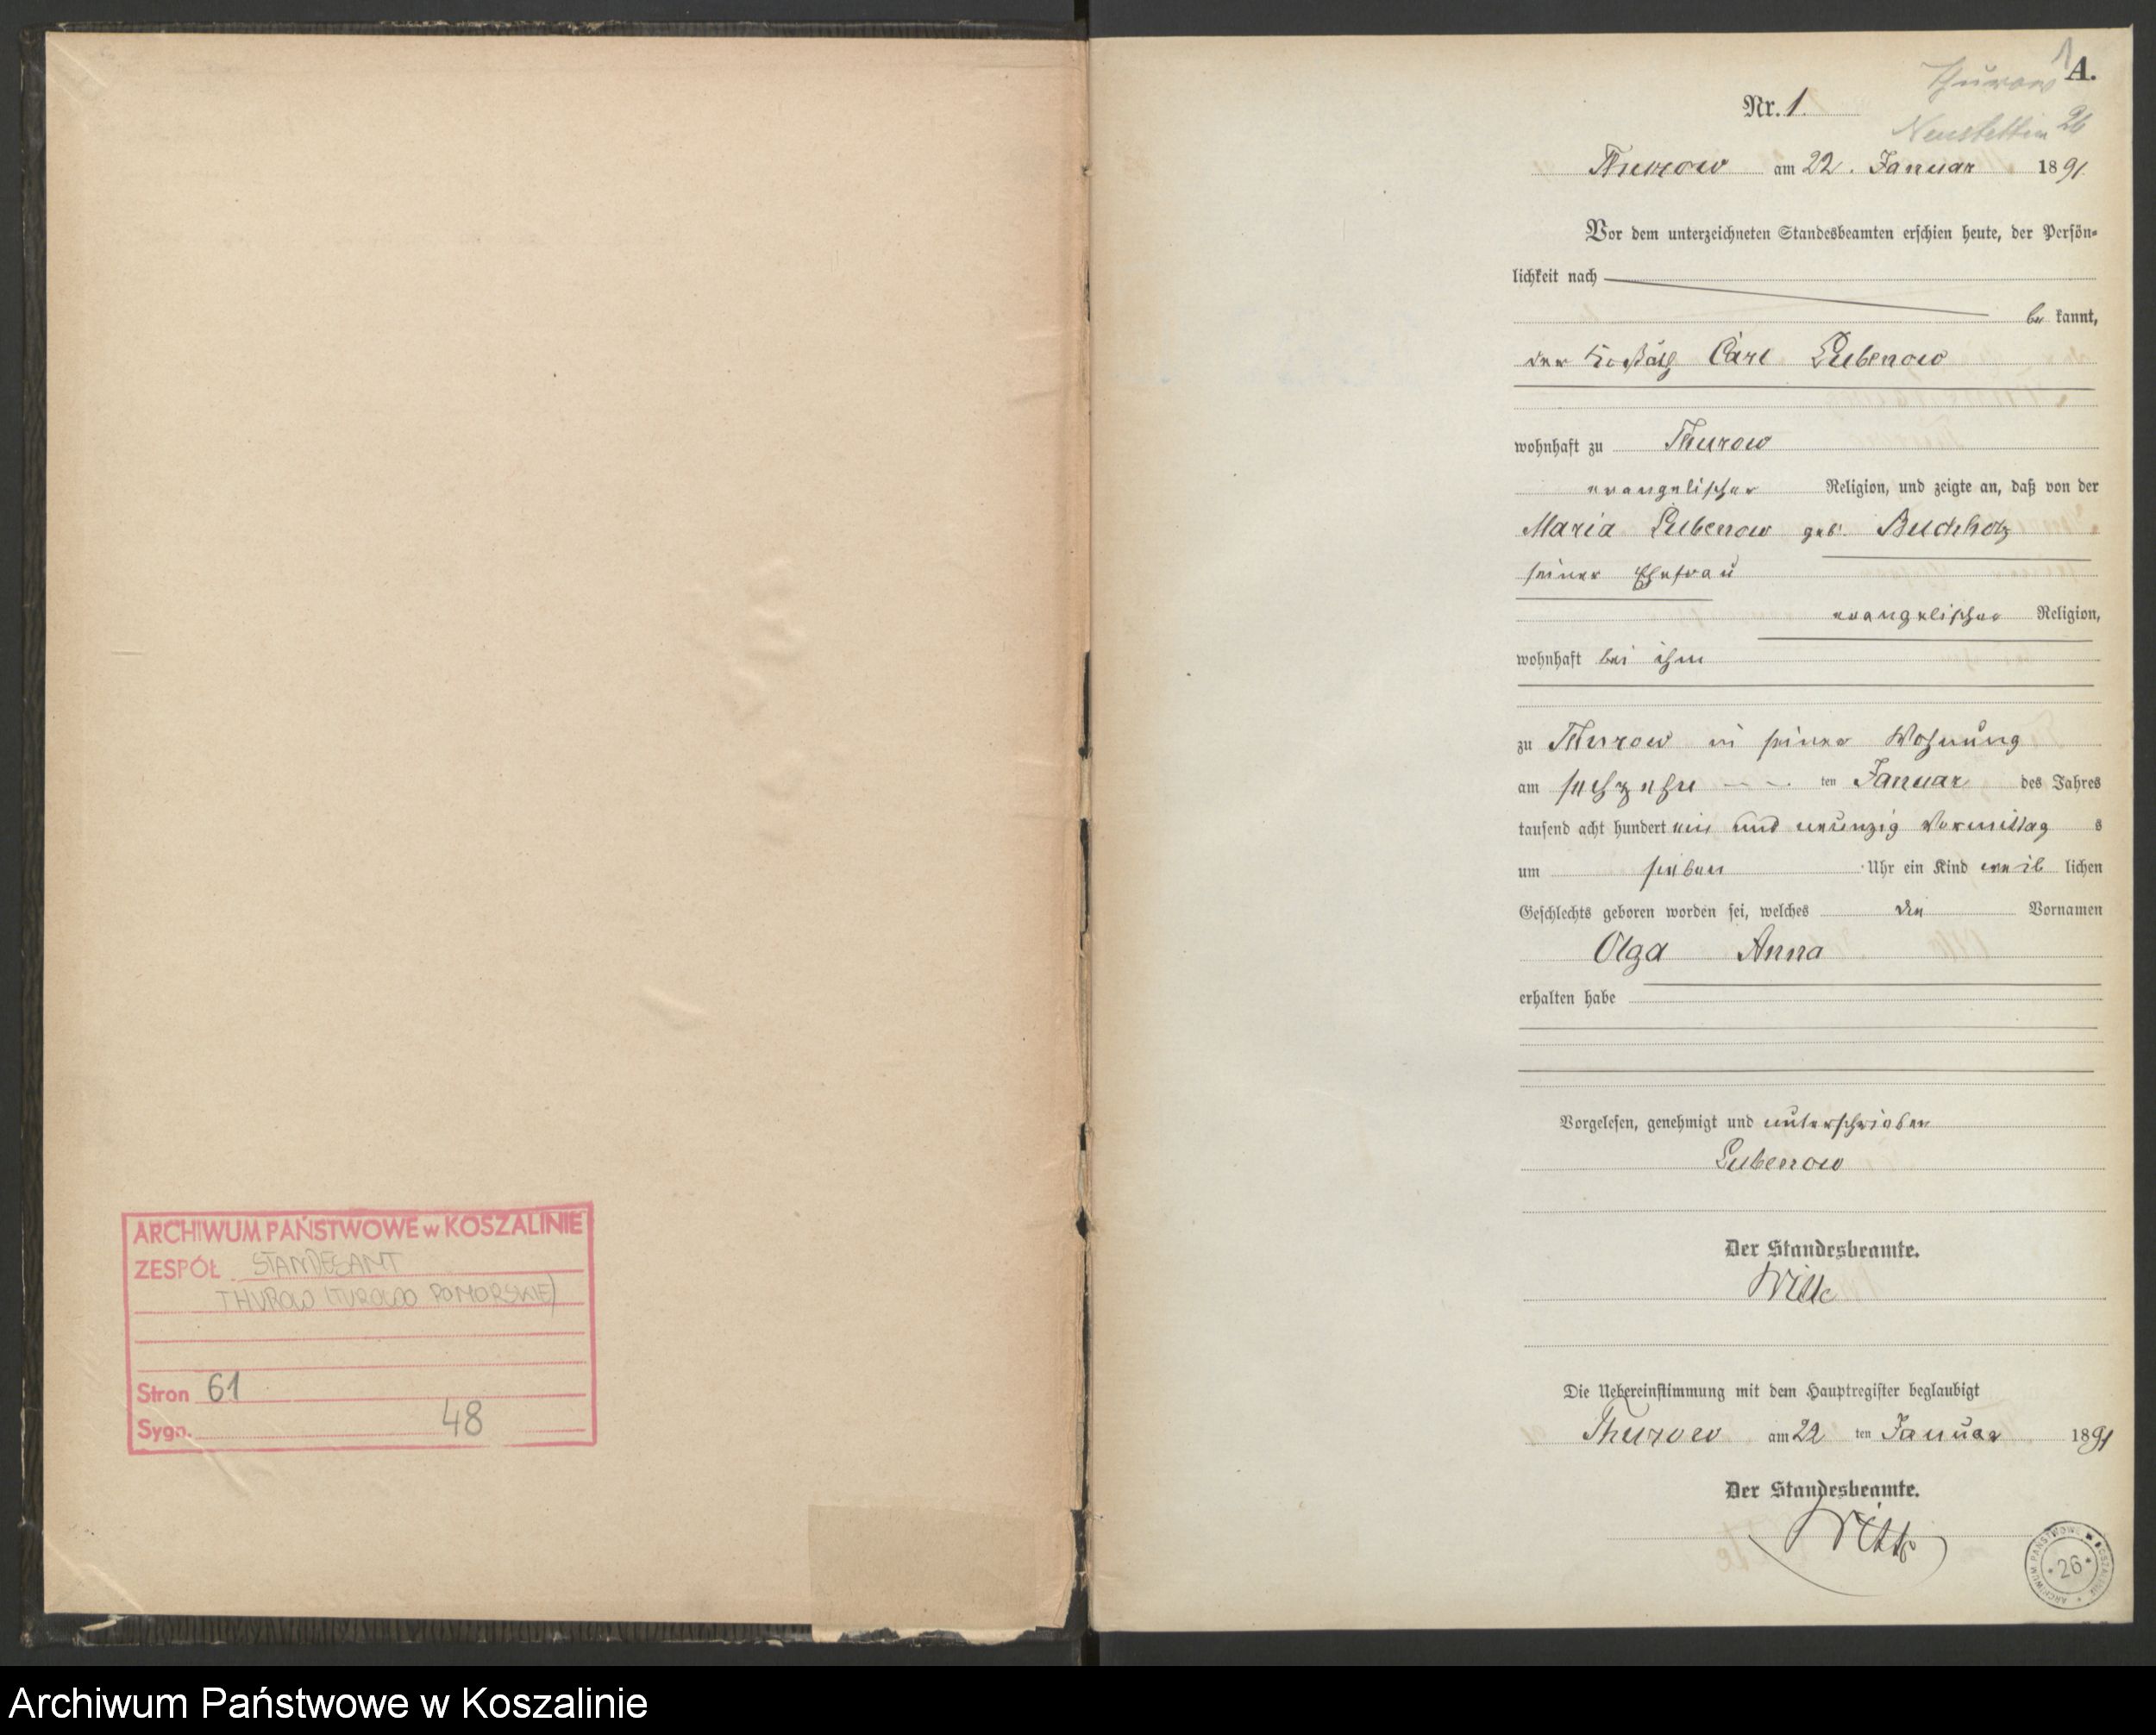 ARCHIWUM PAŃSTWOWE w KOSZALINIE
ZESPÓŁ STANDESAMT
THUROW (TUROWO POMORSKIE)
Stron 61
Sygn. 48
1
Thurow A.
Nr. 1.
Neustettin 26
Thurow am 22. Januar 1891
Vor dem unterzeichneten Standesbeamten erschien heute, der Persön-
lichkeit nach
be kannt,
der Carl Lubenow
wohnhaft zu Thurow
evangelischer Religion, und zeigte an, daß von der
Maria Lubenow geb. Buchholz
seiner Ehefrau
evangelischer Religion,
wohnhaft bei ihm
zu Thurow in seiner Wohnung
am sechzehn ten Januar des Jahres
tausend acht hundert ein und neunzig Vormittag s
um sieben Uhr ein Kind weib lichen
Geschlechts geboren worden sei, welches die Vornamen
Olga Anna
erhalten habe
Vorgelesen, genehmigt und unterschrieben
Lubenow
Der Standesbeamte.
Witte
Die Uebereinstimmung mit dem Hauptregister beglaubigt
Thurow am 22 ten Januar 1891
Der Standesbeamte.
Witte
ARCHIWUM PAŃSTWOWE w KOSZALINIE
26
Archiwum Państwowe w Koszalinie